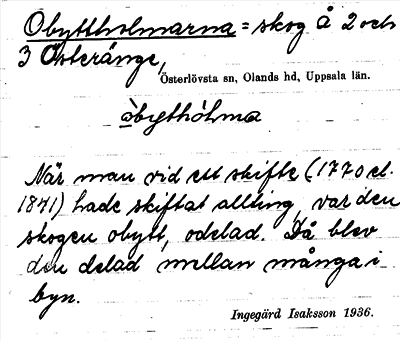 Obyttholmarna = skog å 2 och
3 Österänge,
Österlövsta sn, Olands hd, Uppsala län.
åbythólma
När man vid ett skifte (1770 el.
1841) hade skiftat allting, var den
skogen obytt, odelad. Då blev
den delad mellan många i
byn.
Ingegärd Isaksson 1936.